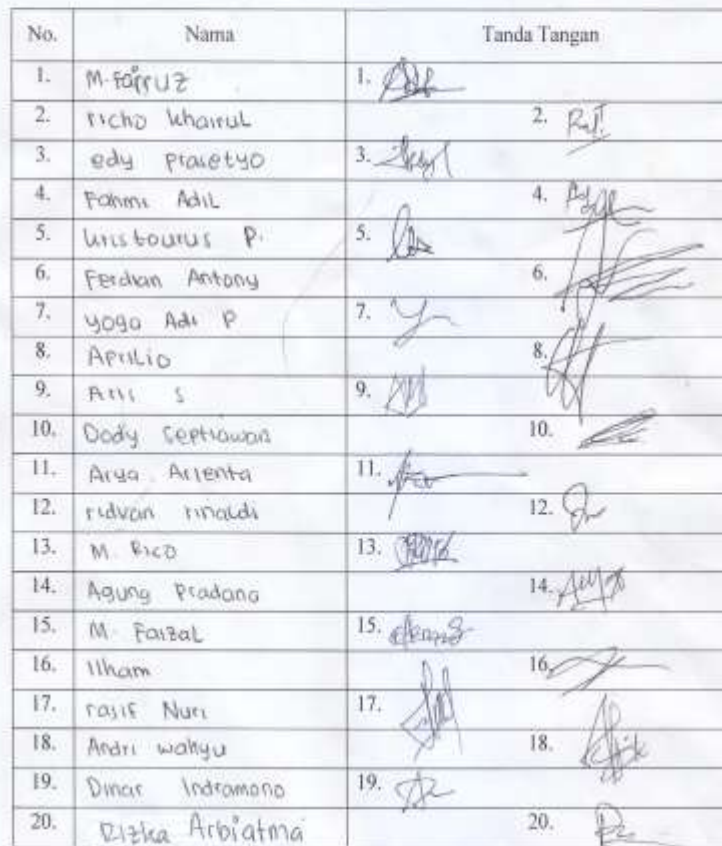 No. Nama Tanda Tangan
1. M. Fairuz 1.
2. richo khairul 2.
3. edy prasetyo 3.
4. Fahmi Adil 4.
5. kristourus P. 5.
6. Ferdian Antony 6.
7. yoga Adi P 7.
8. Aprilio 8.
9. Aris S 9.
10. Dody Septiawan 10.
11. Arya Arienta 11.
12. ridvan rinaldi 12.
13. M. Rico 13.
14. Agung Pradana 14.
15. M. Faizal 15.
16. Ilham 16.
17. rasif Nuri 17.
18. Andri wahyu 18.
19. Dinar Indramono 19.
20. Rizka Arbiatma 20.